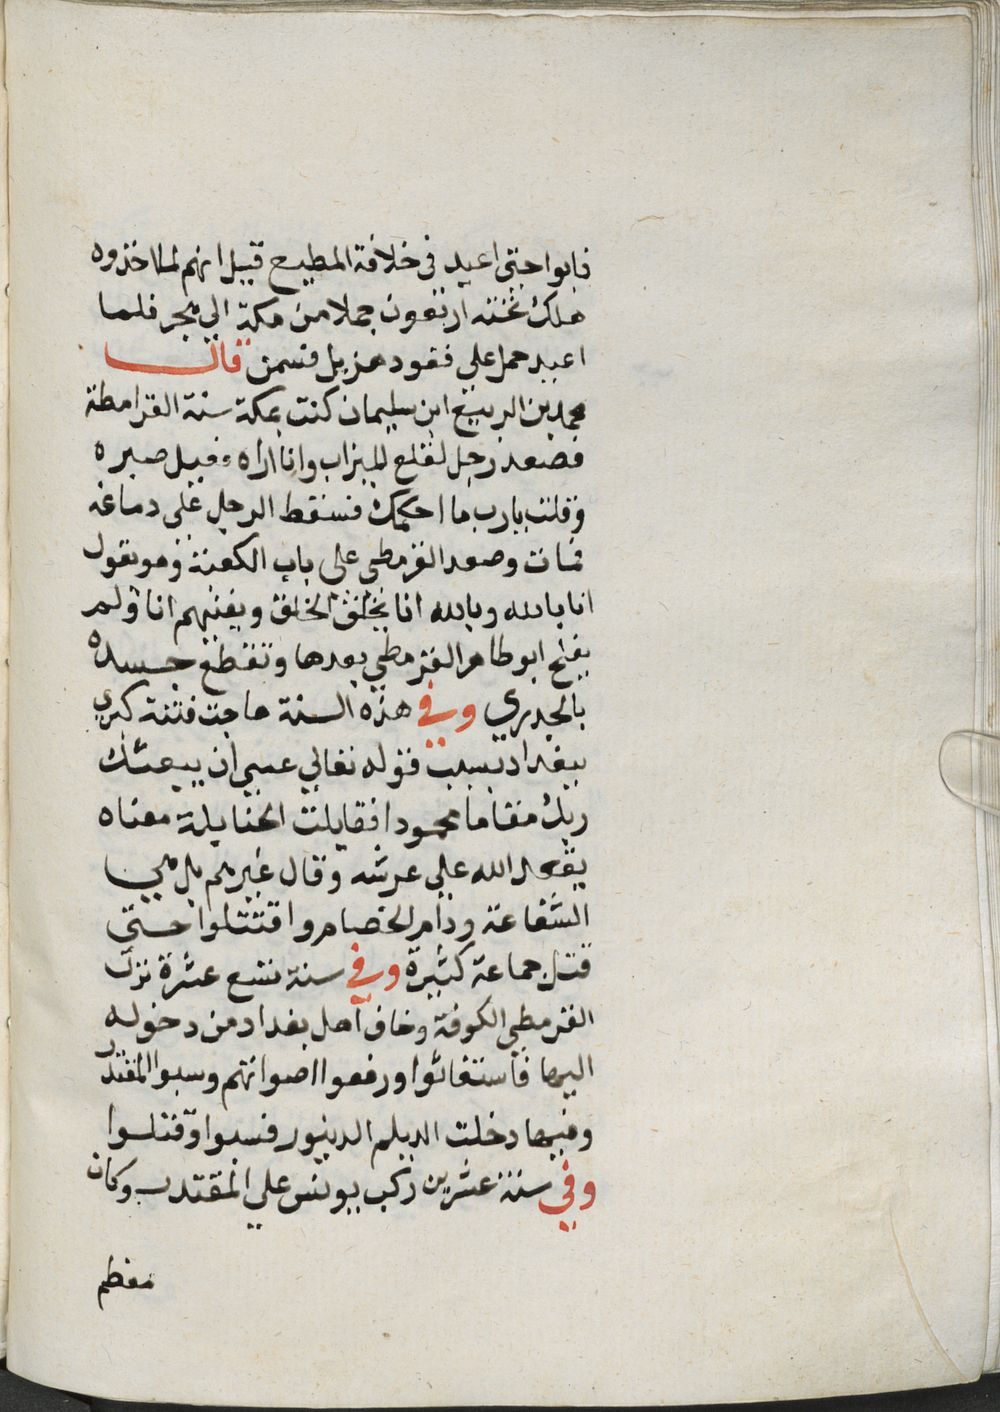 فابوا حتى اعيد في خلافة المطيع قيل انهم لما اخذوه
هلك تحته اربعون جملا من مكة الي هجر فلما
اعيد حمل علي قعود هزيل فسمن قال
محمد بن الربيع ابن سليمان كنت بمكة سنة القرامطة
فصعد رجل لقلع الميزاب وانا اراه فعيل صبره
وقلت يارب ما احكمك فسقط الرجل علي دماغه
فمات وصعد القرمطي علي باب الكعبة وهو يقول
انا بالله وبالله انا يخلق الخلق ويفنيهم انا ولم
يفلح ابو طاهر القرمطي بعدها وتقطع جسده
بالجدري وفي هذه السنة هاجت فتنة كبري
ببغداد بسبب قوله تعالي عسي ان يبعثك
ربك مقاما محمودا فقايلت الحنابلة معناه
يقعد الله علي عرشه وقال غيرهم بل هي
الشفاعة ودام الخصام واقتتلوا حتى
قتل جماعة كثيرة وفي سنة تسع عشرة نزل
القرمطي الكوفة وخاف اهل بغداد من دخوله
اليها فاستغاثوا ورفعوا اصواتهم وسبوا المقتدر
وفيها دخلت الديلم الدينور فسبوا وقتلوا
وفي سنة عشرين ركب يونس علي المقتدر وكان
معظم